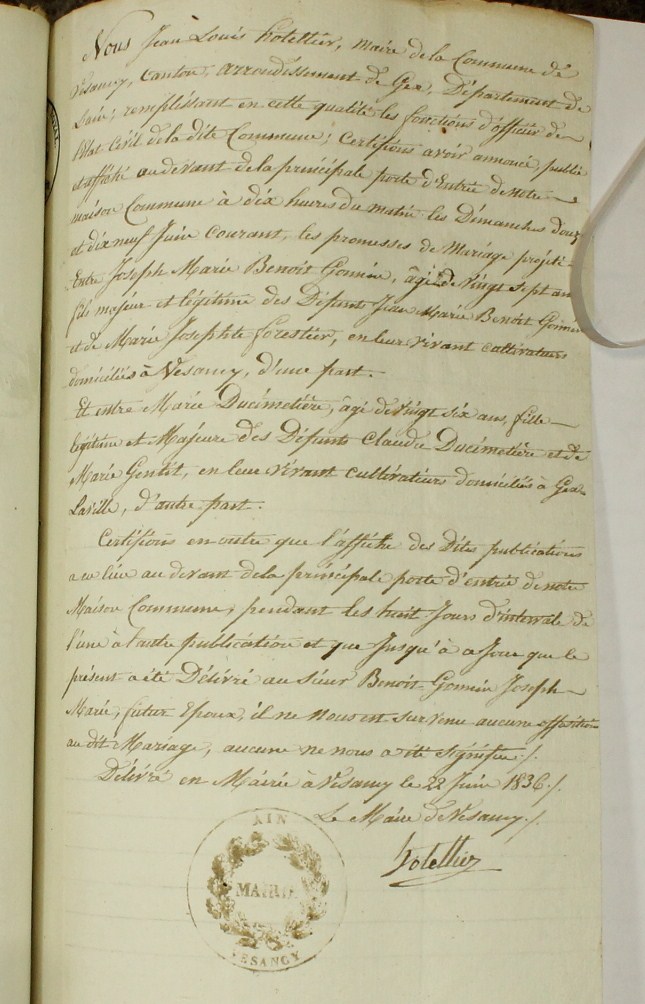 Nous Jean Louis hotellier, maire de la Commune de
Vesancy, canton, arrondissement de Gex, Département de
l'ain; remplissant en cette qualité les fonctions d'officier de
l'état Civil de la dite Commune; certifions avoir annoncé, publié
et affiché au devant de la principale porte d'Entrée de notre
maison Commune à dix heures du matin les Dimanches douze
et dix neuf Juin courant, les promesses de Mariage projeté
Entre Joseph Marie Benoit Gonnin, âgé de vingt sept ans
fils majeur et légitime des Défunts Jean Marie Benoit Gonnin
et de Marie Josephte forestier, en leur vivant cultivateurs
domiciliés à Vesancy, d'une part.
Et entre Marie Ducimetière, âgé de vingt six ans, fille
légitime et Majeure des Défunts Claude Ducimetière et de
Marie Gentet, en leur vivant cultivateurs domiciliés à Gex
Laville, d'autre part.
Certifions en outre que l'affiche des Dites publications
a eu lieu au devant de la principale porte d'entrée de notre
Maison Commune, pendant les huit Jours d'intervale de
l'une à l'autre publication et que Jusqu'à ce Jour que le
présent a été Délivré au sieur Benoit Gonnin Joseph
Marie, futur Epoux, il ne Nous est survenu aucune opposition
au dit Mariage, aucune ne nous a été signifiée ./.
Délivré en Mairie à Vesancy le 22 Juin 1836 ./.
Le Maire de Vesancy ./.
hotellier
AIN
MAIRIE
VESANCY